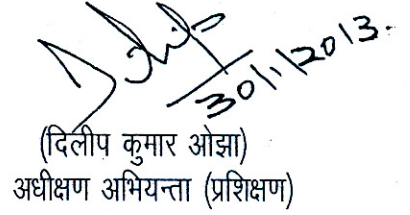 Dilip
30/1/2013.
(दिलीप कुमार ओझा)
अधीक्षण अभियन्ता (प्रशिक्षण)